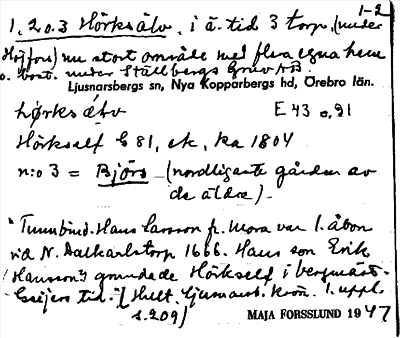 1-2
1, 2 o. 3 Hörksälv, i ä. tid 3 torp, (under
Höjfors) nu stort område med flera egna hem
o. bost. under Ställbergs Gruv AB.
Ljusnarsbergs sn, Nya Kopparbergs hd, Örebro län.
hørksélv E 43 o. 91
Hörkself E 81, ek, ka 1804
n:o 3 = Björs (nordligaste gården av
de äldre).
"Tunnbind. Hans Larsson fr. Mora var 1. åbon
vid N. Dalkarlstorp 1666. Hans son Erik
(Hansson?) grundade Hörkself i bergmäst.
Geijers tid." [Hult. Ljusnarsb. krön. 1. uppl.
s. 209]
MAJA FORSSLUND 1947